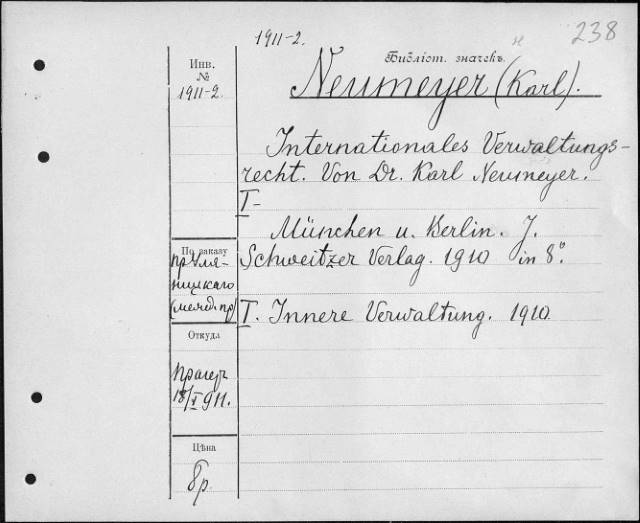 1911-2.
238
Библіот. значекъ.
Инв.
№
1911-2.
Neumeyer (Karl).
Internationales Verwaltungs-
recht. Von Dr. Karl Neumeyer.
I-
München u. Berlin. J.
Schweitzer Verlag. 1910 in 8°.
I. Innere Verwaltung. 1910.
По заказу
ницкаго
Откуда
Прагеръ
18/I 911.
Цѣна
8р.